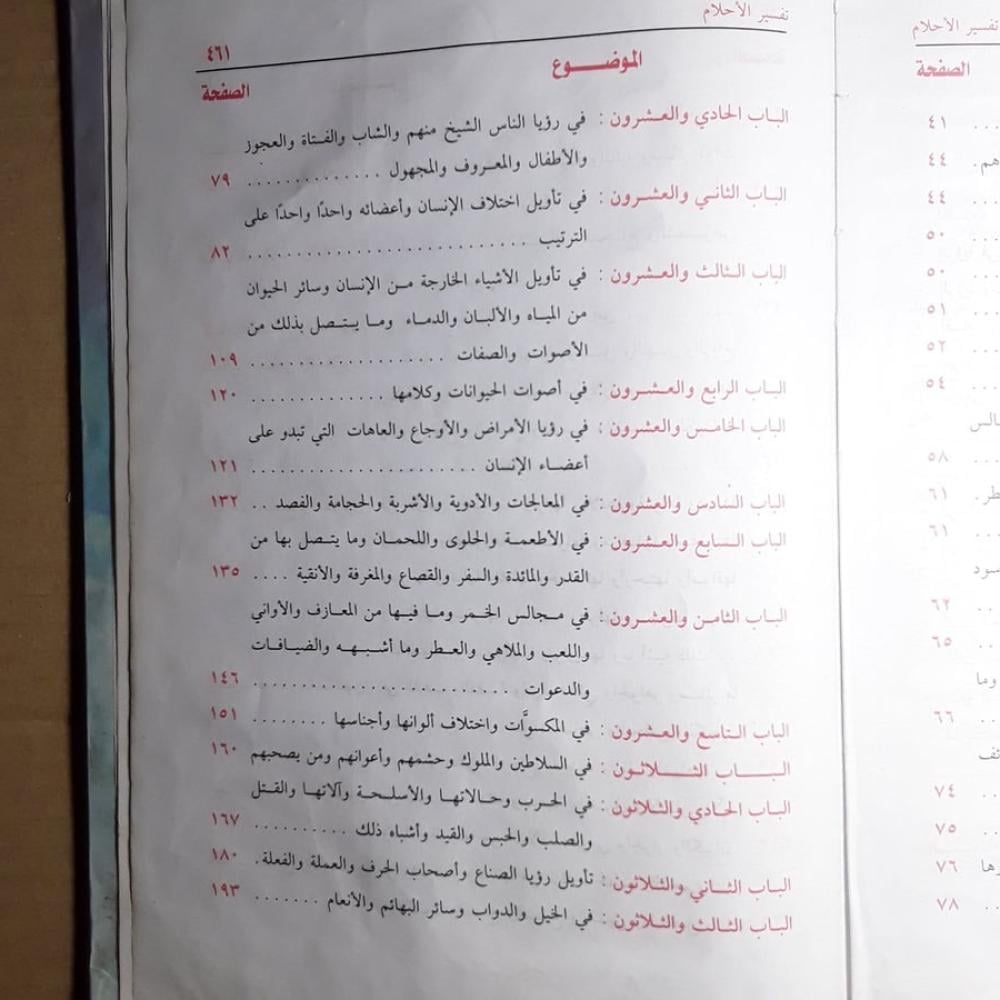 تفسير الأحلام
٤٦١
الموضـــوع
الصفحة
الباب الحادي والعـشرون : في رؤيا الناس الشيخ منهم والشاب والفـتاة والعجوز
والأطفال والمعـروف والمجهول . . . . . . . . . . . . . . ٧٩
الباب الثاني والعـشرون : في تأويل اختلاف الإنسان وأعضائه واحدًا واحدًا على
الترتيب . . . . . . . . . . . . . . . . . . . . . . . . . . . . ٨٢
الباب الـثالث والعـشرون : في تأويل الأشياء الخارجة مـن الإنسان وسائر الحيوان
من المياه والألبان والدماء وما يـتـصل بذلك من
الأصوات والصفات . . . . . . . . . . . . . . . . . . . . ١٠٩
الباب الرابع والعـشرون : في أصوات الحيوانات وكلامها . . . . . . . . . . . . . . ١٢٠
الباب الخامس والعشرون : في رؤيا الأمراض والأوجاع والعاهات التي تبدو على
أعضـاء الإنسان . . . . . . . . . . . . . . . . . . . . . . . ١٢١
الباب السادس والعشرون : في المعالجات والأدوية والأشربة والحجامة والفصد . . ١٣٢
الباب الـسابع والعـشرون : في الأطعمـة والحلوى واللحمان وما يتـصل بها من
القدر والمائدة والسفر والقصاع والمغرفة والأنقية . . . . ١٣٥
الباب الثامن والعـشرون : في مـجالس الخـمر وما فيـها من المعـازف والأواني
واللعب والملاهي والعـطر وما أشـبـهـه والضيـافـات
والدعوات . . . . . . . . . . . . . . . . . . . . . . . . . . ١٤٦
الباب الـتاسع والعـشرون : في المكسوَّات واختلاف ألوانها وأجناسها . . . . . . . . ١٥١
البـــاب الثـــلاثـون : في السلاطين والملوك وحشمهم وأعوانهم ومن يصحبهم ١٦٠
الباب الحادي والـثلاثون : في الحرب وحـالاتهـا والأسلـحـة وآلاتهـا والقـتل
والصلب والحبس والقيد وأشباه ذلك . . . . . . . . . . ١٦٧
الباب الـثاني والـثلاثون : تأويل رؤيا الصناع وأصحاب الحرف والعملة والفعلة. ١٨٠
الباب الثـالث والثلاثون : في الخيل والدواب وسائر البهائم والأنعام . . . . . . . ١٩٣
تفسير الأحلام
الصفحة
٤١
هم. ٤٤
٤٤
٥٠
٥٠
٥١
٥٢
٥٤
٥٨
٦١
٦١
٦٢
٦٥
وما
٦٦
٧٤
٧٥
٧٦
٧٨